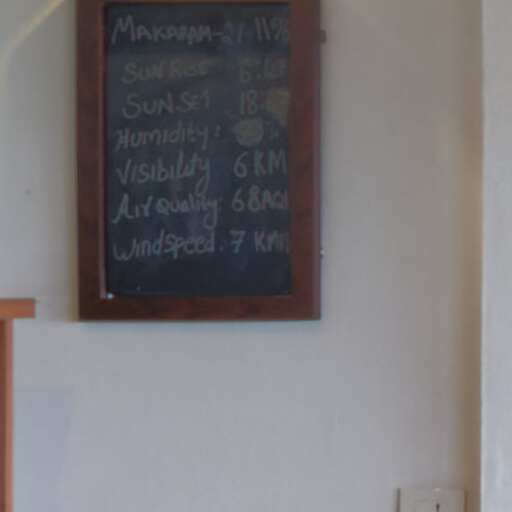 MAKARAM-21 11%
SUN RISE 6.
SUN.SET 18.
HUMIDITY: %
VISIBILITY 6 KM
AIR QUALITY: 68AQI
WINDSPEED. 7 KMH